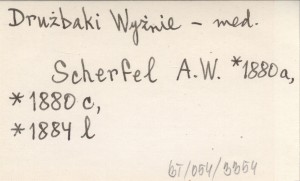 Drużbaki Wyżnie – med.
Scherfel A.W. *1880a,
*1880 c,
*1884 l
6T/054/3354